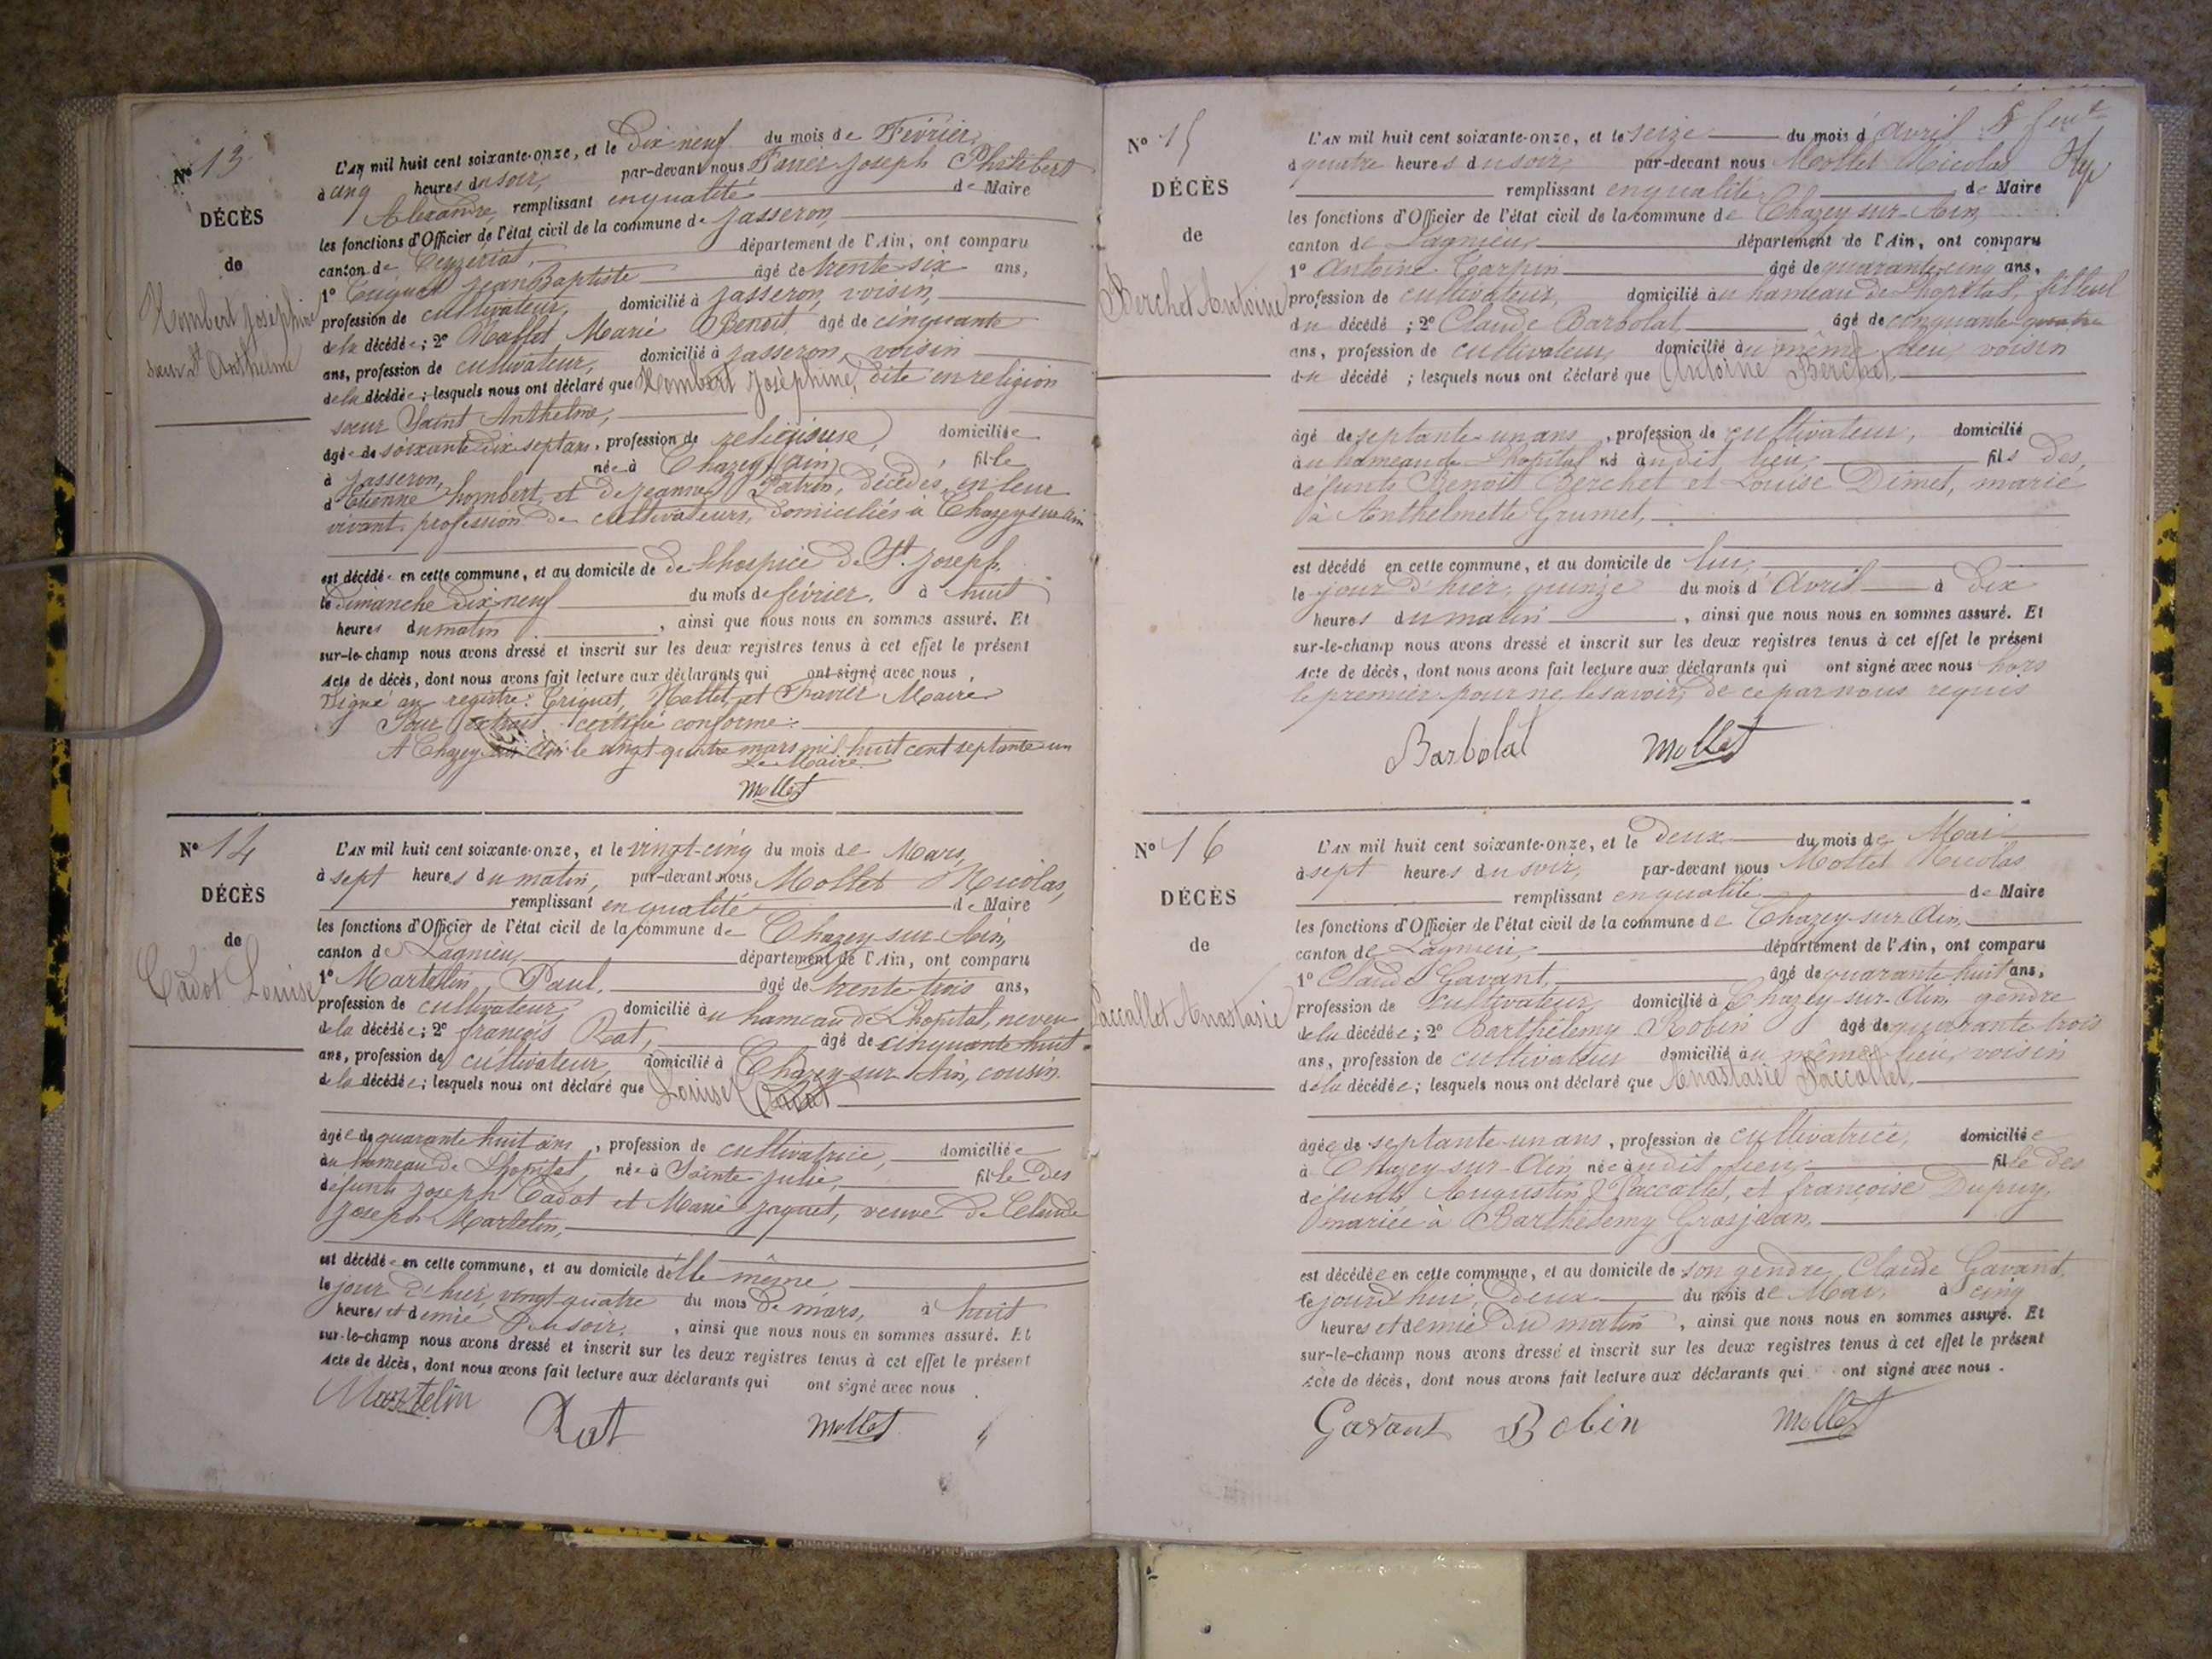 N° 13
DÉCÈS
de
Hombert Joséphine
sœur St Anthelme
L'AN mil huit cent soixante-onze, et le Dix neuf du mois de Février
à cinq heures du soir, par-devant nous Favier Joseph Philibert
Alexandre, remplissant en qualité de Maire
les fonctions d'Officier de l'état civil de la commune de Jasseron,
canton de Ceyzériat, département de l'Ain, ont comparu
1° Jean Baptiste âgé de trente six ans,
profession de cultivateur, domicilié à Jasseron, voisin,
de la décédée; 2° Nallet Marie Benoit, âgé de cinquante
ans, profession de cultivateur, domicilié à Jasseron, voisin
de la décédée; lesquels nous ont déclaré que Hombert Joséphine, dite en religion
sœur Saint Anthelme,
âgée de soixante dix sept ans, profession de religieuse, domiciliée
à Jasseron, née à Chazey (Ain), fille
d'Etienne hombert et de Jeanne Patrin, décédés, en leur
vivant profession de cultivateurs, domiciliés à Chazey sur Ain
est décédée en cette commune, et au domicile de de l'hospice de St. Joseph.
le Dimanche Dix neuf du mois de février, à huit
heures du matin, ainsi que nous nous en sommes assuré. Et
sur-le-champ nous avons dressé et inscrit sur les deux registres tenus à cet effet le présent
Acte de décès, dont nous avons fait lecture aux déclarants qui ont signé avec nous,
Signé au registre: Nallet, et Favier Maire
Pour extrait certifié conforme:
A Chazey sur Ain le vingt quatre mars mil huit cent septante un
Le Maire
Mollet
N° 14
DÉCÈS
de
Cadot Louise
L'AN mil huit cent soixante-onze, et le vingt-cinq du mois de Mars,
à sept heures du matin, par-devant nous Mollet Nicolas,
remplissant en qualité de Maire
les fonctions d'Officier de l'état civil de la commune de Chazey-sur-Ain,
canton de Lagnieu, département de l'Ain, ont comparu
1° Martelin Paul, âgé de trente-trois ans,
profession de cultivateur, domicilié au hameau de Lhopital, neveu
de la décédée; 2° françois Rat, âgé de cinquante huit
ans, profession de cultivateur, domicilié à Chazey-sur-Ain, cousin
de la décédée; lesquels nous ont déclaré que Louise Cadot
âgée de quarante huit ans, profession de cultivatrice, domiciliée
au hameau de Lhopital, née à Sainte Julie, fille des
défunts Joseph Cadot et Marie Jaquet, veuve de Claude
Joseph Martelin,
est décédée en cette commune, et au domicile d'elle même
le jour d'hier, vingt-quatre du mois de mars, à huit
heures et demie du soir, ainsi que nous nous en sommes assuré. Et
sur-le-champ nous avons dressé et inscrit sur les deux registres tenus à cet effet le présent
Acte de décès, dont nous avons fait lecture aux déclarants qui ont signé avec nous.
Martelin Rat Mollet
N° 15
DÉCÈS
de
Berchet Antoine
L'AN mil huit cent soixante-onze, et le seize du mois d'avril
à quatre heures du soir, par-devant nous Mollet Nicolas
remplissant en qualité de Maire
les fonctions d'Officier de l'état civil de la commune de Chazey-sur-Ain,
canton de Lagnieu, département de l'Ain, ont comparu
1° Antoine Carpin âgé de quarante cinq ans,
profession de cultivateur, domicilié au hameau de Lhopital, filleul
du décédé; 2° Claude Barbolat âgé de cinquante quatre
ans, profession de cultivateur, domicilié au même lieu, voisin
du décédé; lesquels nous ont déclaré que Antoine Berchet,
âgé de septante-un ans, profession de cultivateur, domicilié
au hameau de Lhopital né audit lieu, fils des
défunts Benoit Berchet et Louise Dimet, marié
à Anthelmette Grumet,
est décédé en cette commune, et au domicile de lui,
le jour d'hier, quinze du mois d'Avril à dix
heures du matin, ainsi que nous nous en sommes assuré. Et
sur-le-champ nous avons dressé et inscrit sur les deux registres tenus à cet effet le présent
Acte de décès, dont nous avons fait lecture aux déclarants qui ont signé avec nous hors
le premier pour ne le savoir, de ce par nous requis
Barbolat Mollet
N° 16
DÉCÈS
de
Paccallet Anastasie
L'AN mil huit cent soixante-onze, et le Deux du mois de Mai
à sept heures du soir, par-devant nous Mollet Nicolas
remplissant en qualité de Maire
les fonctions d'Officier de l'état civil de la commune de Chazey-sur-Ain,
canton de Lagnieu, département de l'Ain, ont comparu
1° Claude Gavant, âgé de quarante-huit ans,
profession de cultivateur, domicilié à Chazey-sur-Ain, gendre
de la décédée; 2° Barthélemy Bobin âgé de quarante trois
ans, profession de cultivateur domicilié au même lieu, voisin
de la décédée; lesquels nous ont déclaré que Anastasie Paccallet,
âgée de septante-un ans, profession de cultivatrice, domiciliée
à Chazey-sur-Ain, née audit lieu, fille des
défunts Augustin Paccallet, et françoise Dupuy,
mariée à Barthélemy Grosjean,
est décédée en cette commune, et au domicile de son gendre Claude Gavant,
le jourd'hui, Deux du mois de Mai, à cinq
heures et demie du matin, ainsi que nous nous en sommes assuré. Et
sur-le-champ nous avons dressé et inscrit sur les deux registres tenus à cet effet le présent
Acte de décès, dont nous avons fait lecture aux déclarants qui ont signé avec nous.
Gavant Bobin Mollet